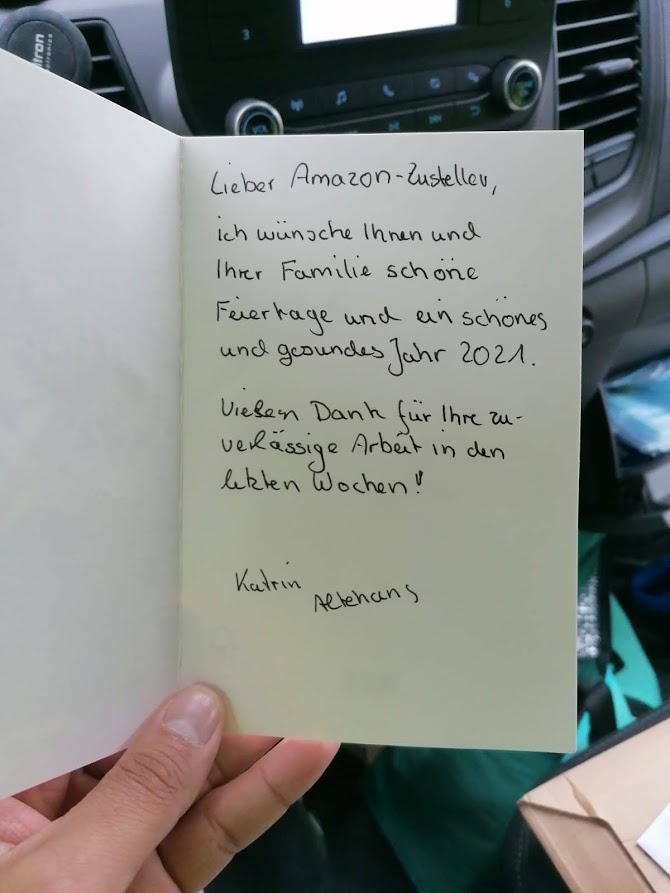 tron
3
VOL
Lieber Amazon-Zusteller,
ich wünsche Ihnen und
Ihrer Familie schöne
Feiertage und ein schönes
und gesundes Jahr 2021.
Vielen Dank für Ihre zu-
verlässige Arbeit in den
letzten Wochen!
Katrin
Altehans